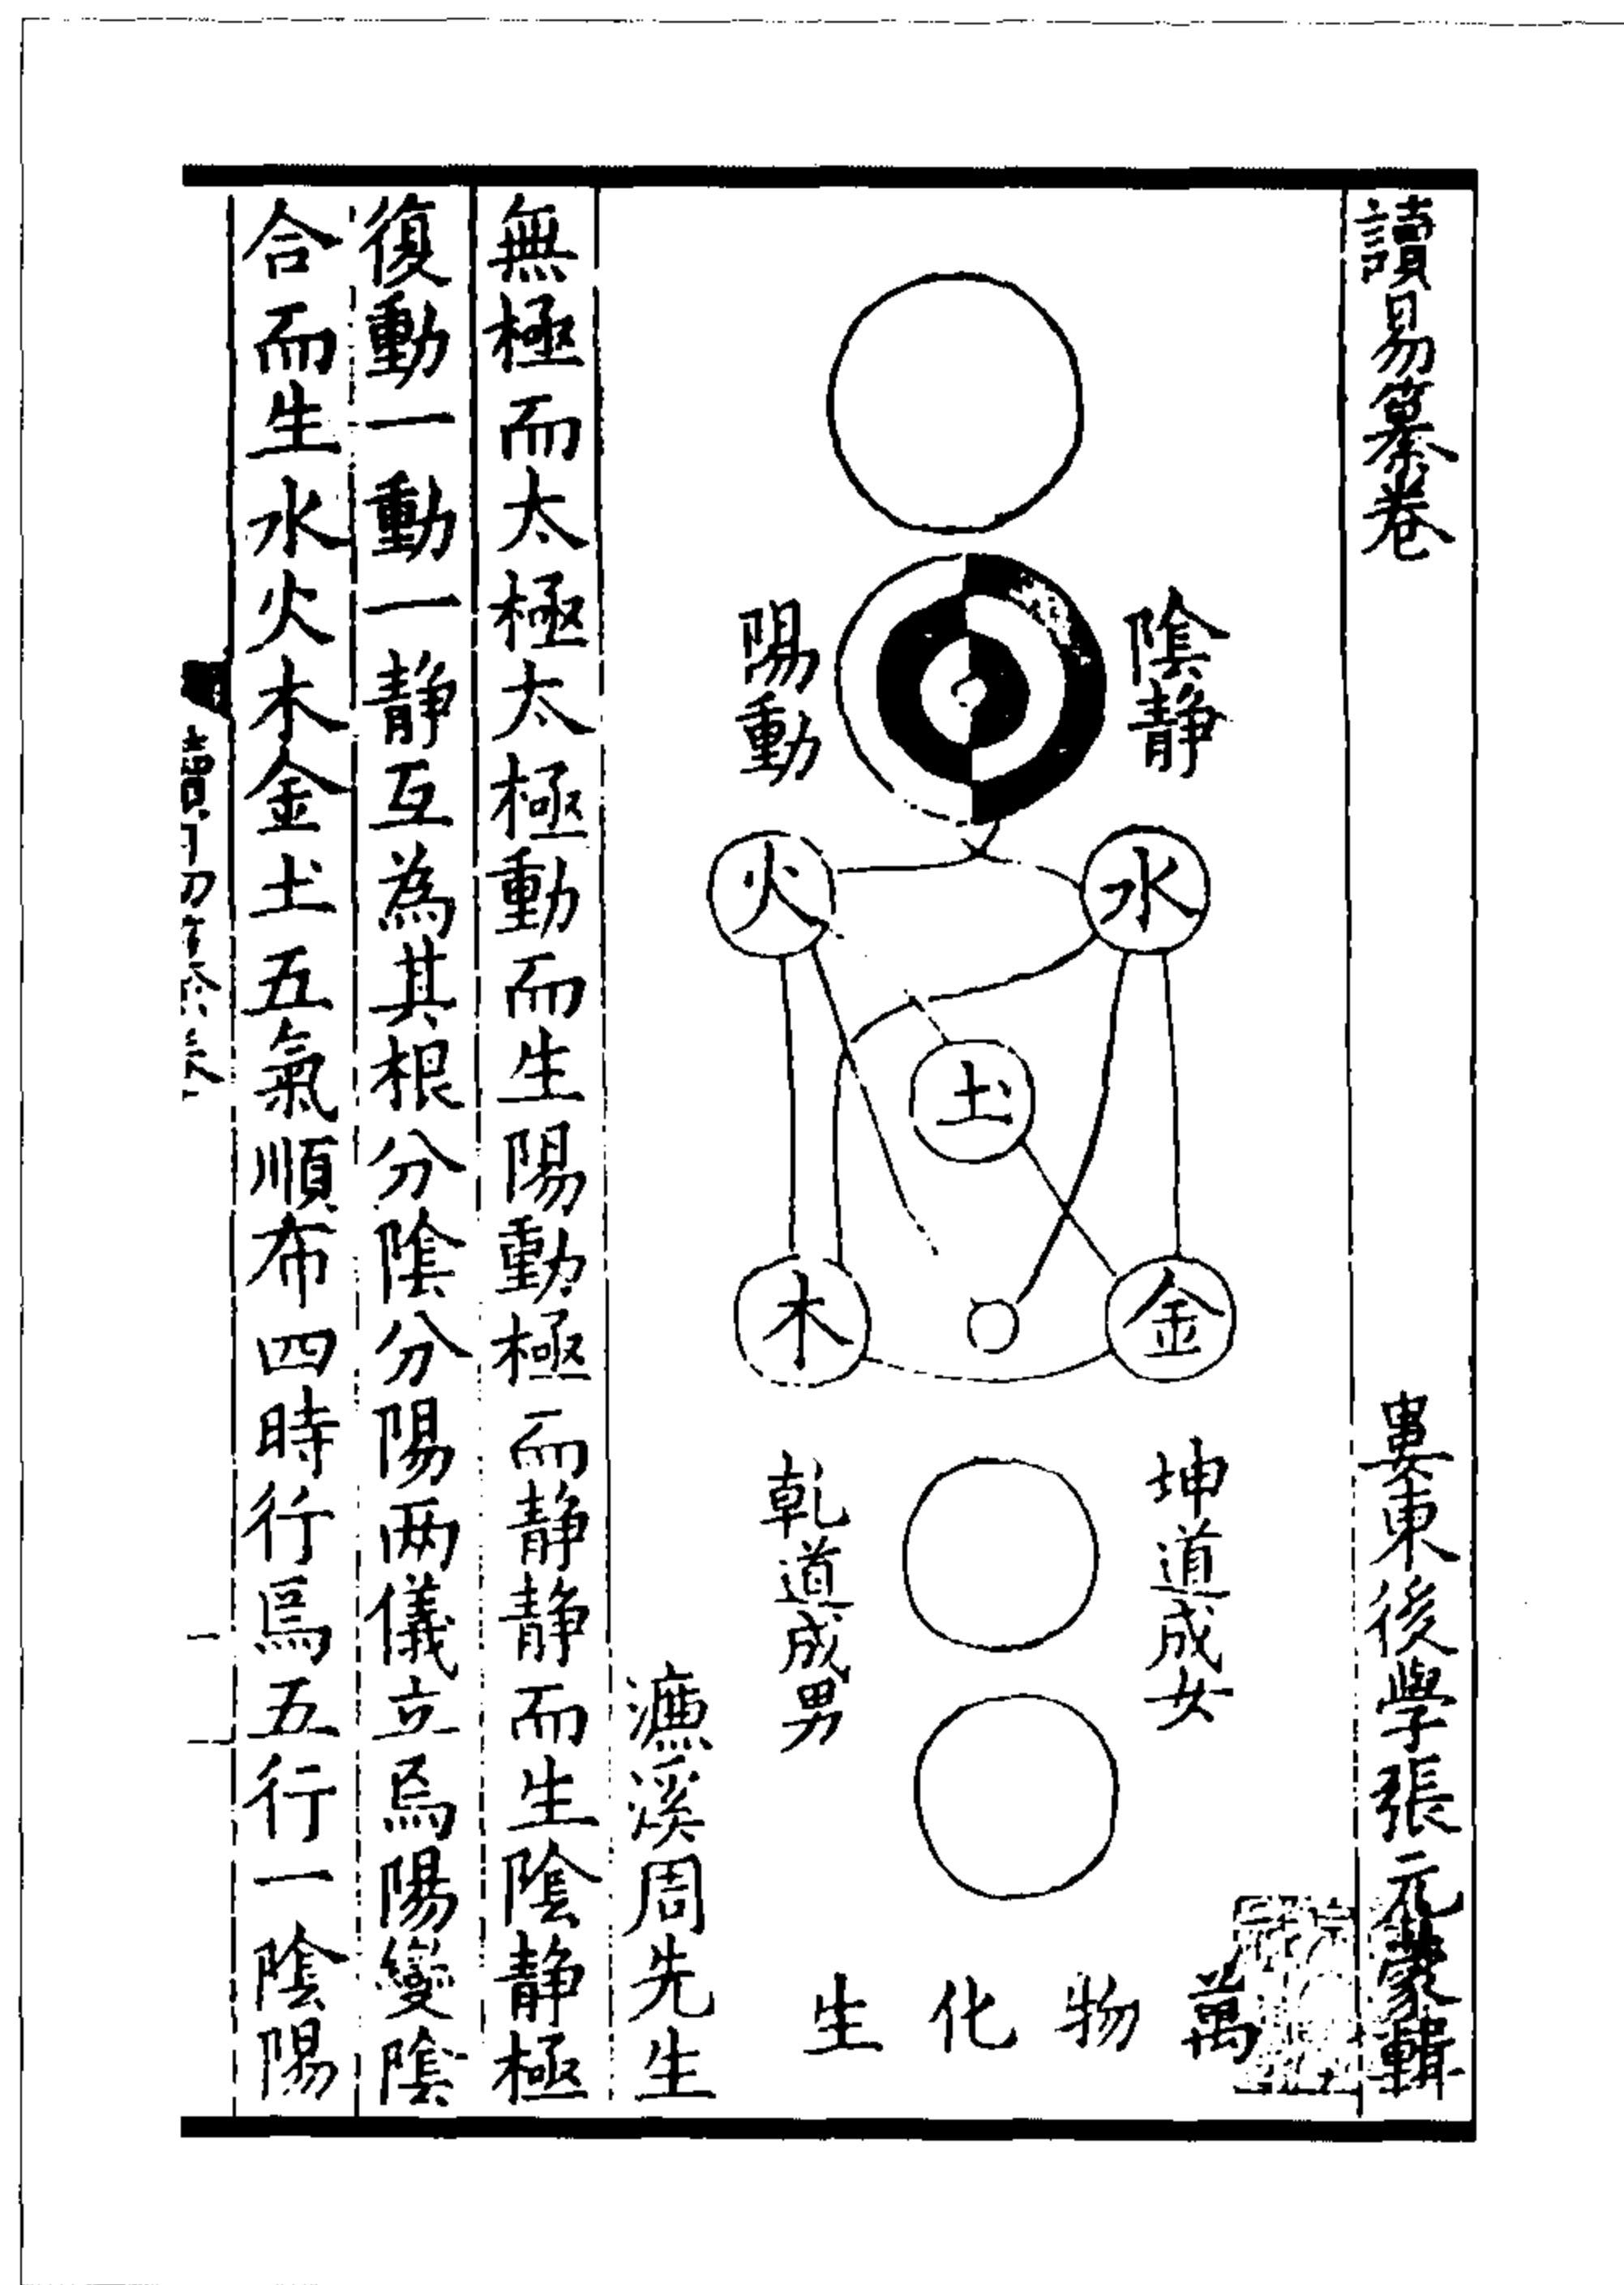 讀易纂卷
婁東後學張元蒙輯
陰靜
陽動
水
火
土
金
木
坤道成女
乾道成男
萬物化生
濂溪周先生
無極而太極太極動而生陽動極而静静而生陰静極
復動一動一静互為其根分陰分陽兩儀立焉陽變陰
合而生水火木金土五氣順布四時行焉五行一陰陽